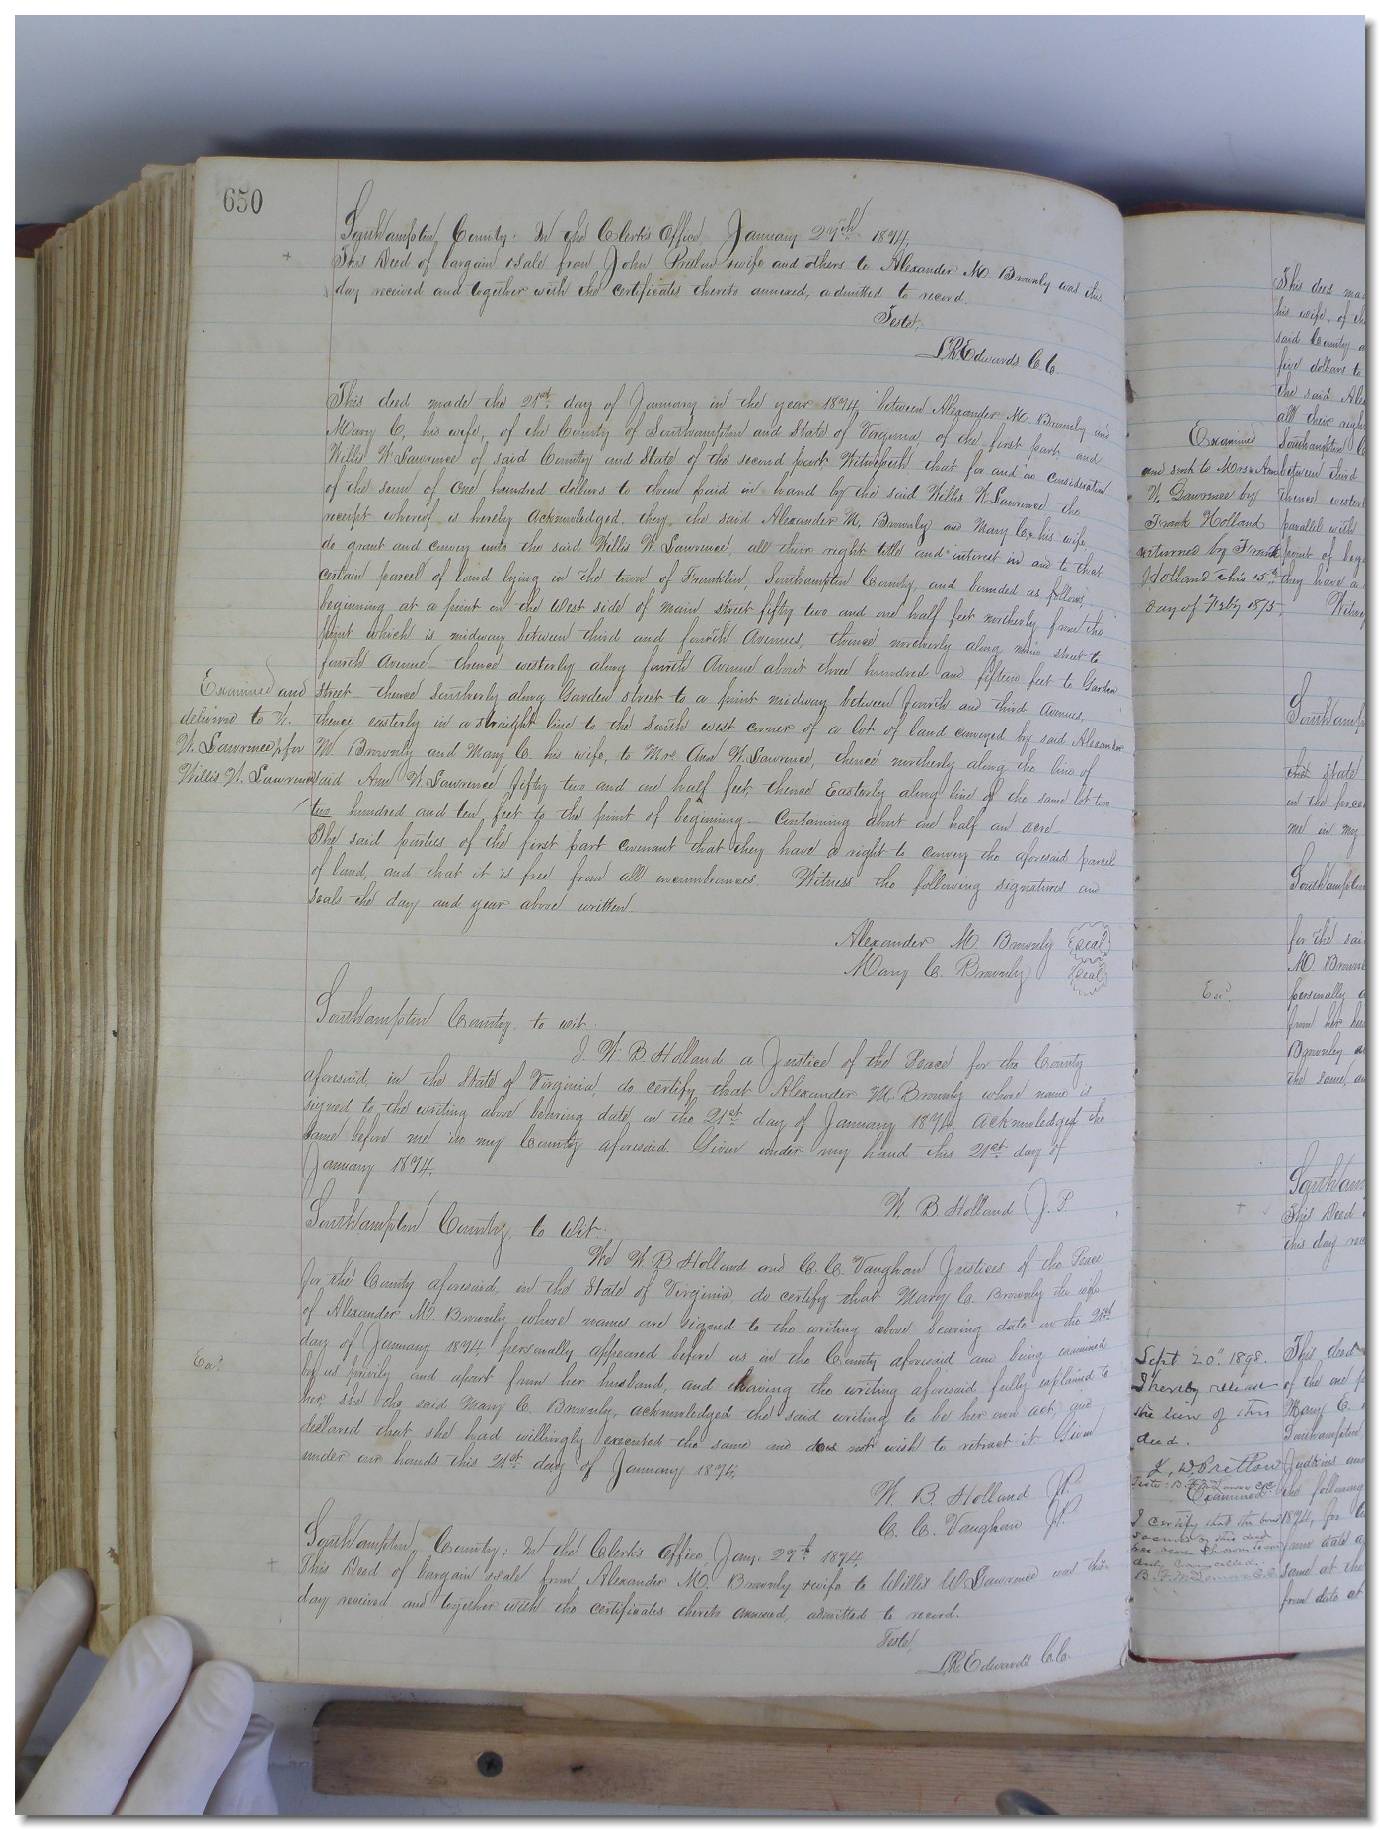 650
Southampton County: In the Clerk's Office, January 27th 1874,
This Deed of bargain & sale from John Pretlow & wife and others to Alexander M. Brownly was this
day received and together with the certificates thereto annexed, admitted to record.
Teste,
L.R. Edwards C.C.
This deed made the 21st day of January in the year 1874, between Alexander M. Brownly and
Mary C, his wife, of the County of Southampton and State of Virginia, of the first part and
Willis W. Lawrence of said County and State of the second part Witnesseth that for and in consideration
of the sum of One hundred dollars to them paid in hand by the said Willis W. Lawrence the
receipt whereof is hereby acknowledged, they, the said Alexander M. Brownly and Mary C, his wife
do grant and convey unto the said Willis W. Lawrence, all their right title and interest in and to that
certain parcel of land lying in the town of Franklin, Southampton County, and bounded as follows,
beginning at a point on the West side of main street fifty two and one half feet northerly from the
point which is midway between third and fourth Avenues, thence northerly along main street to
fourth Avenue thence westerly along fourth Avenue about three hundred and fifteen feet to Garden
street thence Southerly along Garden street to a point midway between fourth and third Avenues,
thence easterly in a straight line to the South west corner of a lot of land conveyed by said Alexander
M. Brownly and Mary C. his wife, to Mrs Ann W. Lawrence, thence northerly along the line of
said Ann W. Lawrence fifty two and one half feet, thence Easterly along line of the same lot two
two hundred and ten feet to the point of beginning - Containing about one half an acre
The said parties of the first part covenant that they have a right to convey the aforesaid parcel
of land, and that it is free from all encumbrances. Witness the following signatures and
seals the day and year above written.
Alexander M. Brownly Seal
Mary C. Brownly Seal
Southampton County, to wit:
I, W. B Holland a Justice of the Peace for the County
aforesaid, in the State of Virginia, do certify that Alexander M. Brownly whose name is
signed to the writing above bearing date on the 21st day of January 1874, acknowledged the
same before me in my County aforesaid. Given under my hand this 21st day of
January 1874.
W. B Holland J. P.
Southampton County, to Wit:
We W. B Holland and C. C. Vaughan Justices of the Peace
for the County aforesaid, in the State of Virginia, do certify that Mary C. Brownly the wife
of Alexander M. Brownly whose names are signed to the writing above bearing date on the 21st
day of January 1874 personally appeared before us in the County aforesaid and being examined
by us privily and apart from her husband, and having the writing aforesaid fully explained to
her she the said Mary C. Brownly, acknowledged the said writing to be her own act, and
declared that she had willingly executed the same and does not wish to retract it Given
under our hands this 21st day of January 1874.
W. B. Holland J.P.
C. C. Vaughan J.P.
Southampton County: In the Clerk's Office, Jany. 27th 1874,
This Deed of bargain & sale from Alexander M. Brownly & wife to Willis W. Lawrence was this
day received and together with the certificates thereto annexed, admitted to record.
Teste,
L.R. Edwards C.C.
Examined and
delivered to W.
W. Lawrence for
Willis W. Lawrence
Exd.
Examined
and sent to Mrs Ann
W. Lawrence by
Frank Holland
returned by Frank
Holland this 5th
day of Feby 1875,
Exd.
Sept 20" 1898.
I hereby release
the lien of this
deed.
Pretlow
Examined
I certify that the bond
This deed ma
his wife, of th
said County a
five dollars to
the said Ale
all their righ
Southampton C
between third
thence wester
parallel with
point of beg
they have a
Witne
Southamp
State
me in my
Southampton
for the sai
M. Brown
personally a
from her hus
Brownly a
the same, a
Southam
This Deed
this day rec
This deed
of the one p
Mary C.
Southampton
Judkins
the following
same at the
from date at